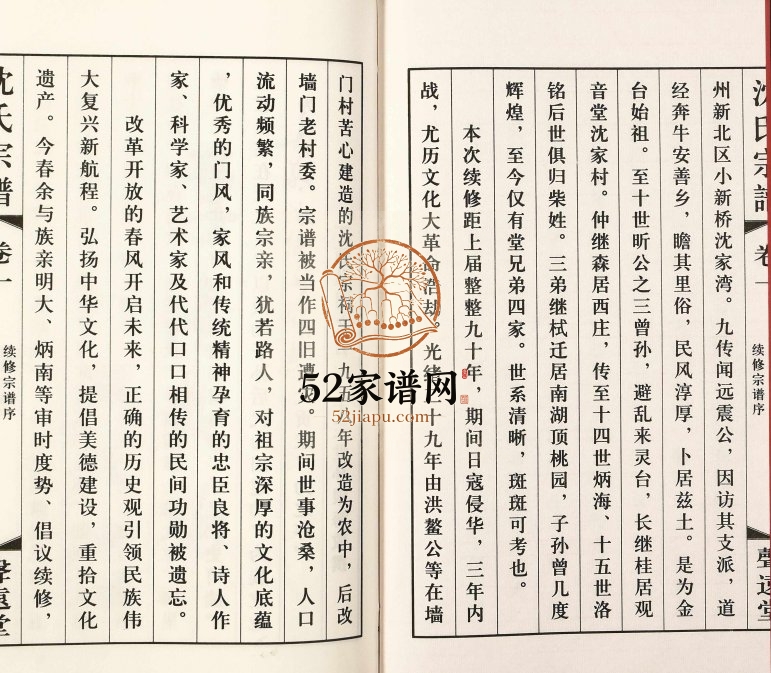 沈氏宗譜
卷一
续修宗谱序
聲遠堂
州新北区小新桥沈家湾。九传闻远震公，因访其支派，道
经奔牛安善乡，瞻其里俗，民风淳厚，卜居兹土。是为金
台始祖。至十世昕公之三曾孙，避乱来灵台，长继桂居观
音堂沈家村。仲继森居西庄，传至十四世炳海、十五世洛
铭后世俱归柴姓。三弟继栻迁居南湖顶桃园，子孙曾几度
辉煌，至今仅有堂兄弟四家。世系清晰，斑斑可考也。
本次续修距上届整整九十年，期间日寇侵华，三年内
战，尤历文化大革命浩劫。光绪二十九年由洪鳌公等在墙
门村苦心建造的沈氏宗祠于一九五八年改造为农中，后改
墙门老村委。宗谱被当作四旧遭灾。期间世事沧桑，人口
流动频繁，同族宗亲，犹若路人，对祖宗深厚的文化底蕴
，优秀的门风，家风和传统精神孕育的忠臣良将、诗人作
家、科学家、艺术家及代代口口相传的民间功勋被遗忘。
改革开放的春风开启未来，正确的历史观引领民族伟
大复兴新航程。弘扬中华文化，提倡美德建设，重拾文化
遗产。今春余与族亲明大、炳南等审时度势、倡议续修，
沈氏宗譜
卷一
续修宗谱序
聲遠堂
52家谱网
52jiapu.com